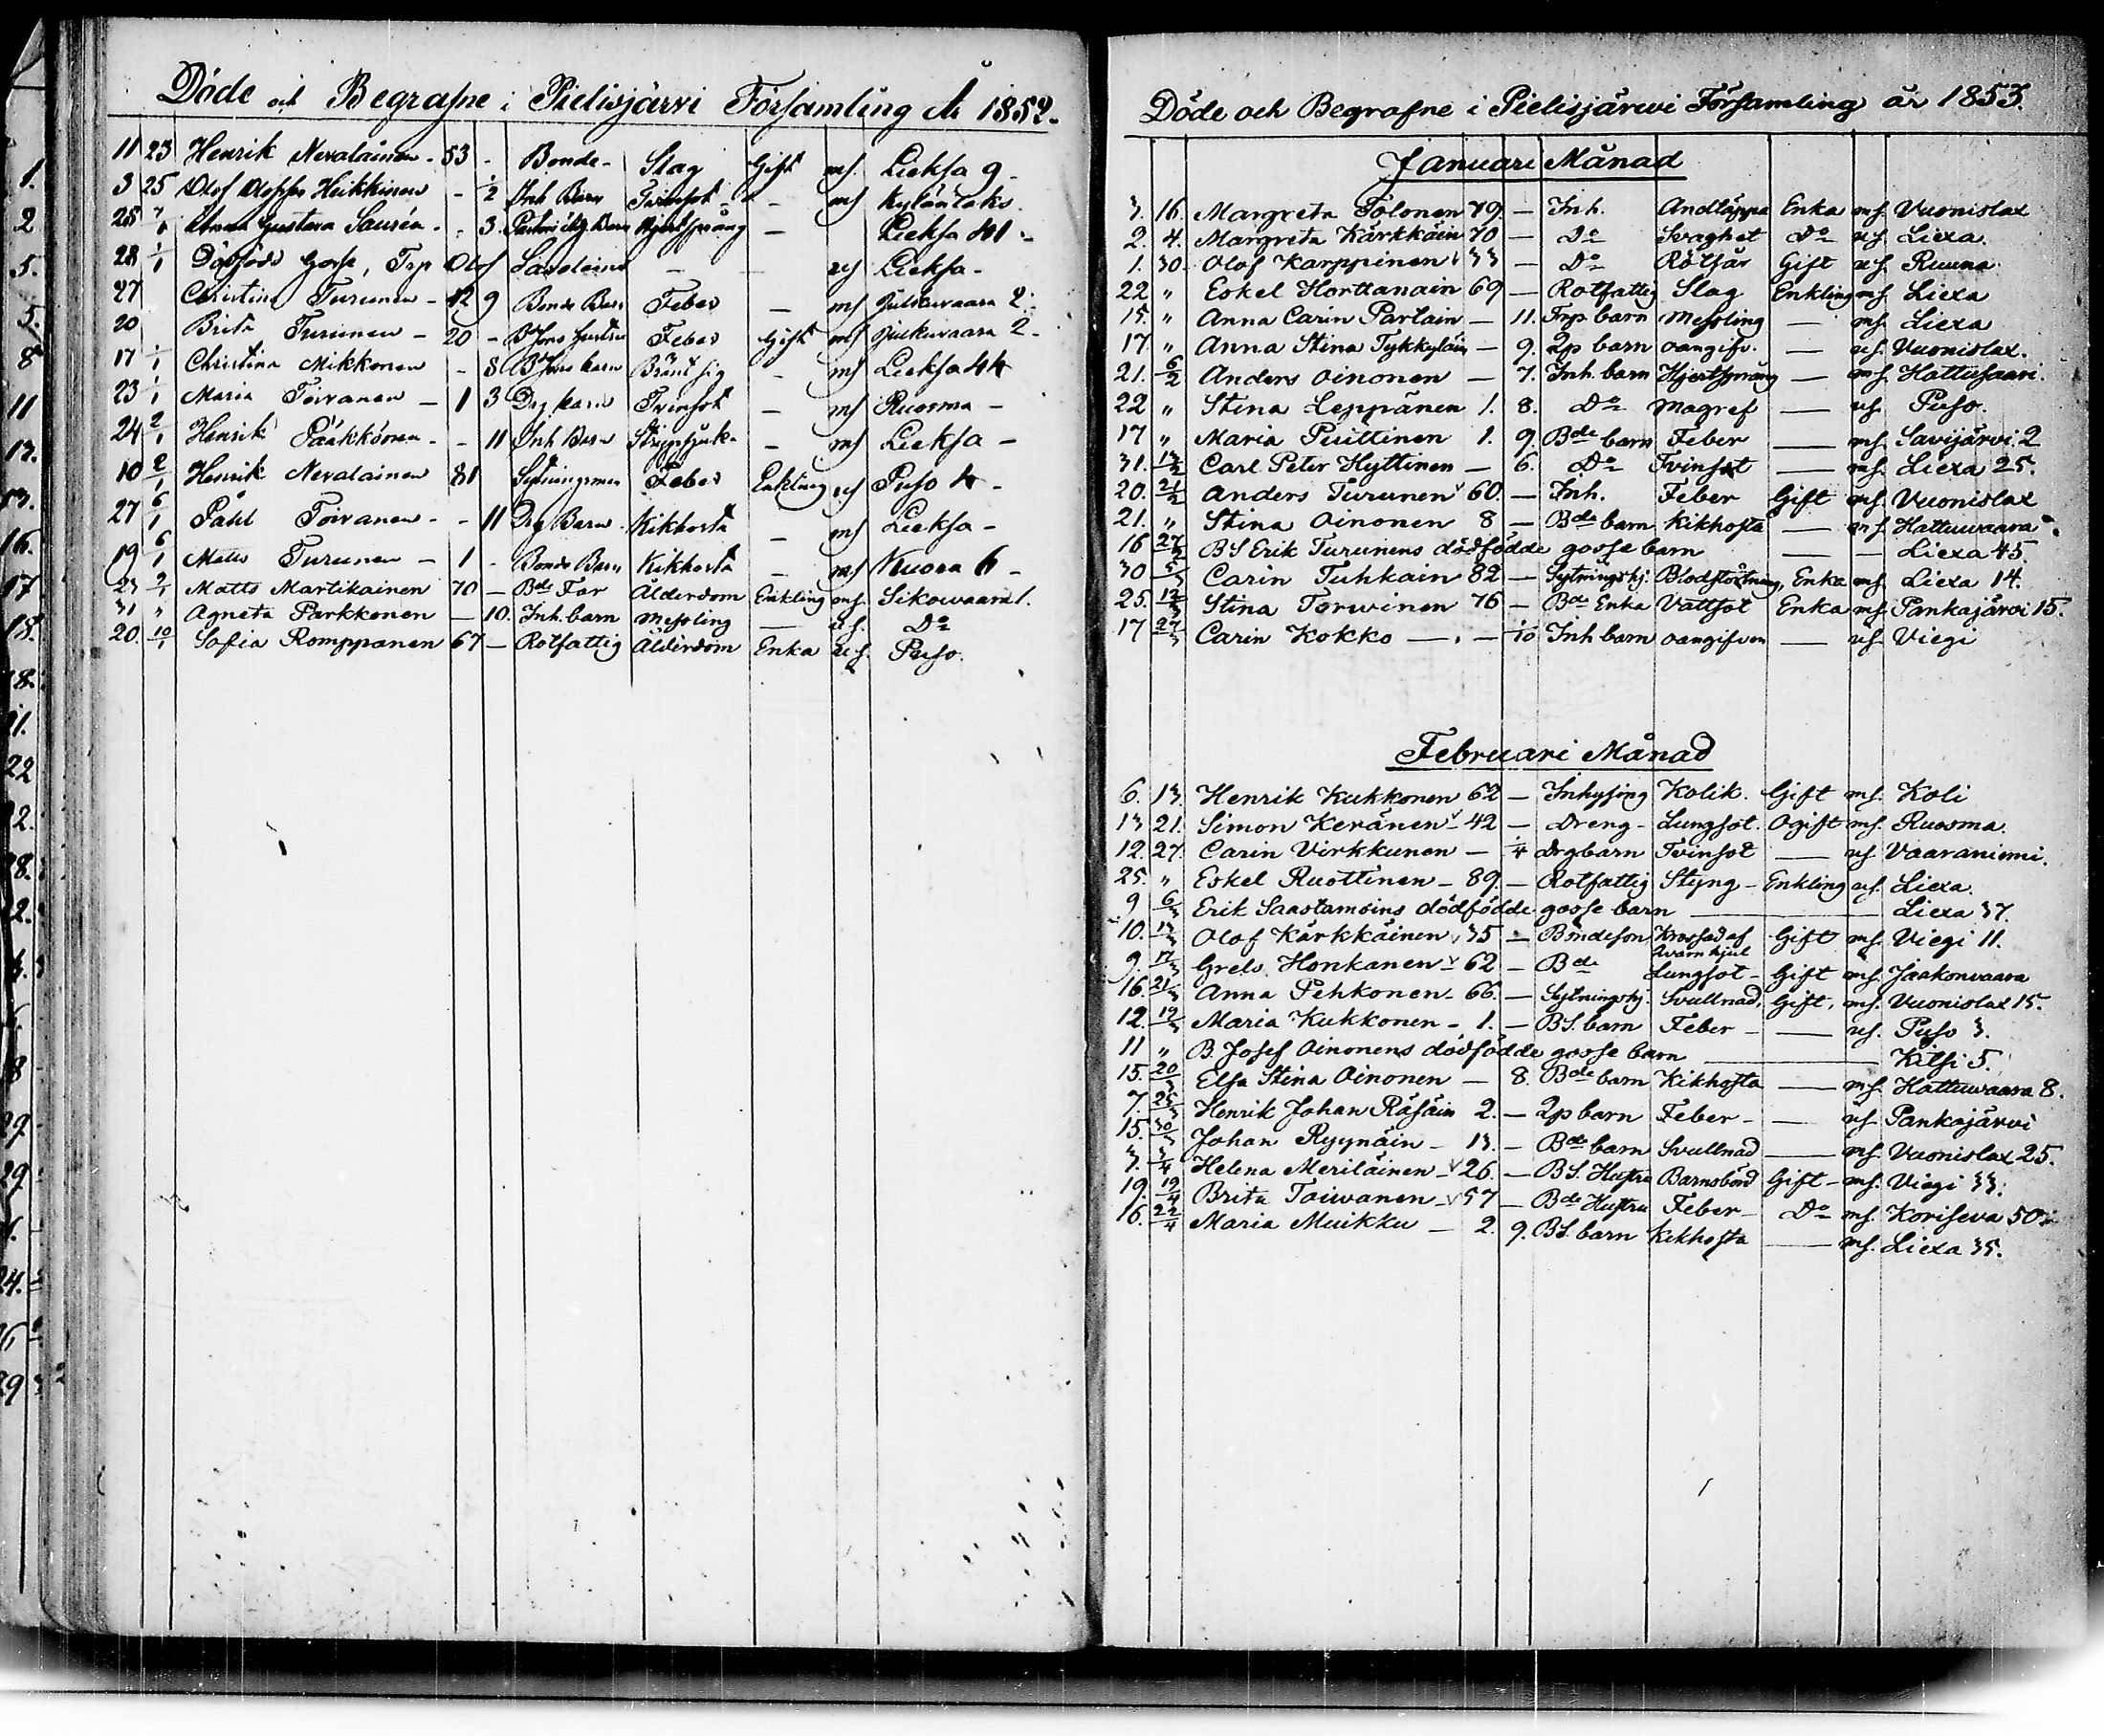 Döde och Begrafne i Pielisjärvi Församling År 1852.
11 23 Henrik Nevalainen - 53 - Bonde - Slag Gift mf. Lieksa 9 -
3 25 Olof Heikkinen - ½ Inh Barn Tvinsot - - mf Kyläntaka.
28 Anna Gustava Saurén - - 3. Barn Hjertsprång - Lieksa 41 -
28 Dödfödd Gosse, Trp Olof - - uf Lieksa -
27 Christina Turunen - 12 9 Bonde Barn Feber - mf Julkuvaara 2.
20 Brita Turunen - 20 - Feber Gift mf Julkuvaara 2 -
17 Christina Mikkonen - 8 barn Bränt sig - mf Lieksa 44
23 Maria Toivanen - 1 3 Drg barn Tvinsot - mf Ruosma -
24 2/1 Henrik Pääkkönen - - 11 Inh Barn - mf Lieksa -
10 2/1 Henrik Nevalainen 81 Feber Enkling uf Puso 4 -
27 6/1 Påhl Toivanen - - 11 Drg Barn Kikhosta - mf Lieksa -
19 6/1 Matts Turunen - 1 - Bonde Barn Kikhosta - mf Nuora 6 -
23 2/1 Matts Martikainen 70 - Bde Far Ålderdom Enkling mf. Sikowaara 1.
31 " Agneta Parkkonen — 10. Inh. barn Messling — uf. Do
20. 10/1 Sofia Romppanen 67 - Rotfattig Ålderdom Enka uf. Puso.
Döde och Begrafne i Pielisjärwi Församling år 1853.
Januari Månad
3. 16. Margreta Tolonen 79. - Inh. Andtäppa Enka mf. Vuonislax
2. 4. Margreta Kärkkäin 70 - Do Svaghet Do uf. Liexa.
1. 30 Olof Karppinen 33 - Do Rötsår Gift uf. Ruuna.
22 " Eskel Horttanain 69 - Rotfattig Slag Enkling mf. Liexa
15. " Anna Carin Partain - 11. Trp barn Messling — mf. Liexa
17. " Anna Stina Tykkyläin - 9. 2p barn oangifv. — uf. Vuonislax.
21. 6/2 Anders Oinonen - 7. Inh. barn Hjertsprång — mf. Hattusaari.
22 " Stina Leppänen 1. 8. Do Magref — uf. Puso.
17 " Maria Puittinen 1. 9. Bde barn Feber — mf. Savijärvi 2
31. 13/2 Carl Peter Hyttinen - 6. Do Tvinsot — mf. Liexa 25.
20. 21/2 Anders Turunen 60. - Inh. Feber Gift mf. Vuonislax
21. " Stina Oinonen 8 - Bde barn Kikhosta — mf. Hattuwaara
16 27/2 BS Erik Turunens dödfödde gosse barn — — Liexa 45.
30 5/3 Carin Tuhkain 82 - Sytningshj. Blodstörtning Enka mf. Liexa 14.
25. 12/3 Stina Torvinen 76 - Bde Enka Vattsot Enka mf. Pankajärvi 15.
17 27/3 Carin Kokko — - 1/10 Inh barn oangifven — uf. Viegi
Februari Månad
6. 13. Henrik Kukkonen 62 - Inhysing Kolik. Gift mf. Koli
13 21. Simon Keränen - 42 - Dreng - Lungsot. Ogift mf. Ruosma.
12. 27. Carin Virkkunen - ¼ Drgbarn Tvinsot — uf. Vaaraniemi.
25. " Eskel Ruottinen - 89. - Rotfattig Styng - Enkling uf. Liexa.
9 6/3 Erik Saastamoins dödfödde gosse barn — Liexa 37.
10. 13/3 Olof Kärkkäinen 35 - Bondeson Krossad af qvarnhjul Gift mf. Viegi 11.
9. 17/3 Grels Honkanen - 62 - Bde Lungsot - Gift mf. Jaakonvaara
16. 21/3 Anna Pehkonen - 66. - Sytningshj. Svullnad. Gift. mf. Vuonislax 15.
12. 19/3 Maria Kukkonen - 1. - BS. barn Feber - — uf. Puso 3.
11 " B. Josef Oinonens dödfödde gosse barn — Kitsi 5.
15. 20/3 Elsa Stina Oinonen - 8. Bde barn Kikhosta — mf. Hattuwaara 8.
7. 25/3 Henrik Johan Räsäin 2. - 2p barn Feber - — uf. Pankajärvi
15. 30/3 Johan Ryynäin - 13. - Bde barn Svullnad — mf. Vuonislax 25.
3. 3/4 Helena Meriläinen - 26. - BS. Hustru Barnsbörd Gift - mf. Viegi 33.
19. 19/4 Brita Toiwanen - 57 - Bde Hustru Feber - Do mf. Koriseva 50.
16. 22/4 Maria Muikku - 2. 9. BS. barn Kikhosta — mf. Liexa 35.